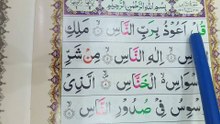 بِسْمِ اللّٰهِ الرَّحْمٰنِ الرَّحِيْمِ
قُلْ اَعُوْذُ بِرَبِّ النَّاسِ ۝ مَلِكِ
النَّاسِ ۝ اِلٰهِ النَّاسِ ۝ مِنْ شَرِّ
سْوَاسِ ۝ الْخَنَّاسِ ۝ الَّذِيْ
سْوِسُ فِيْ صُدُوْرِ النَّاسِ ۝